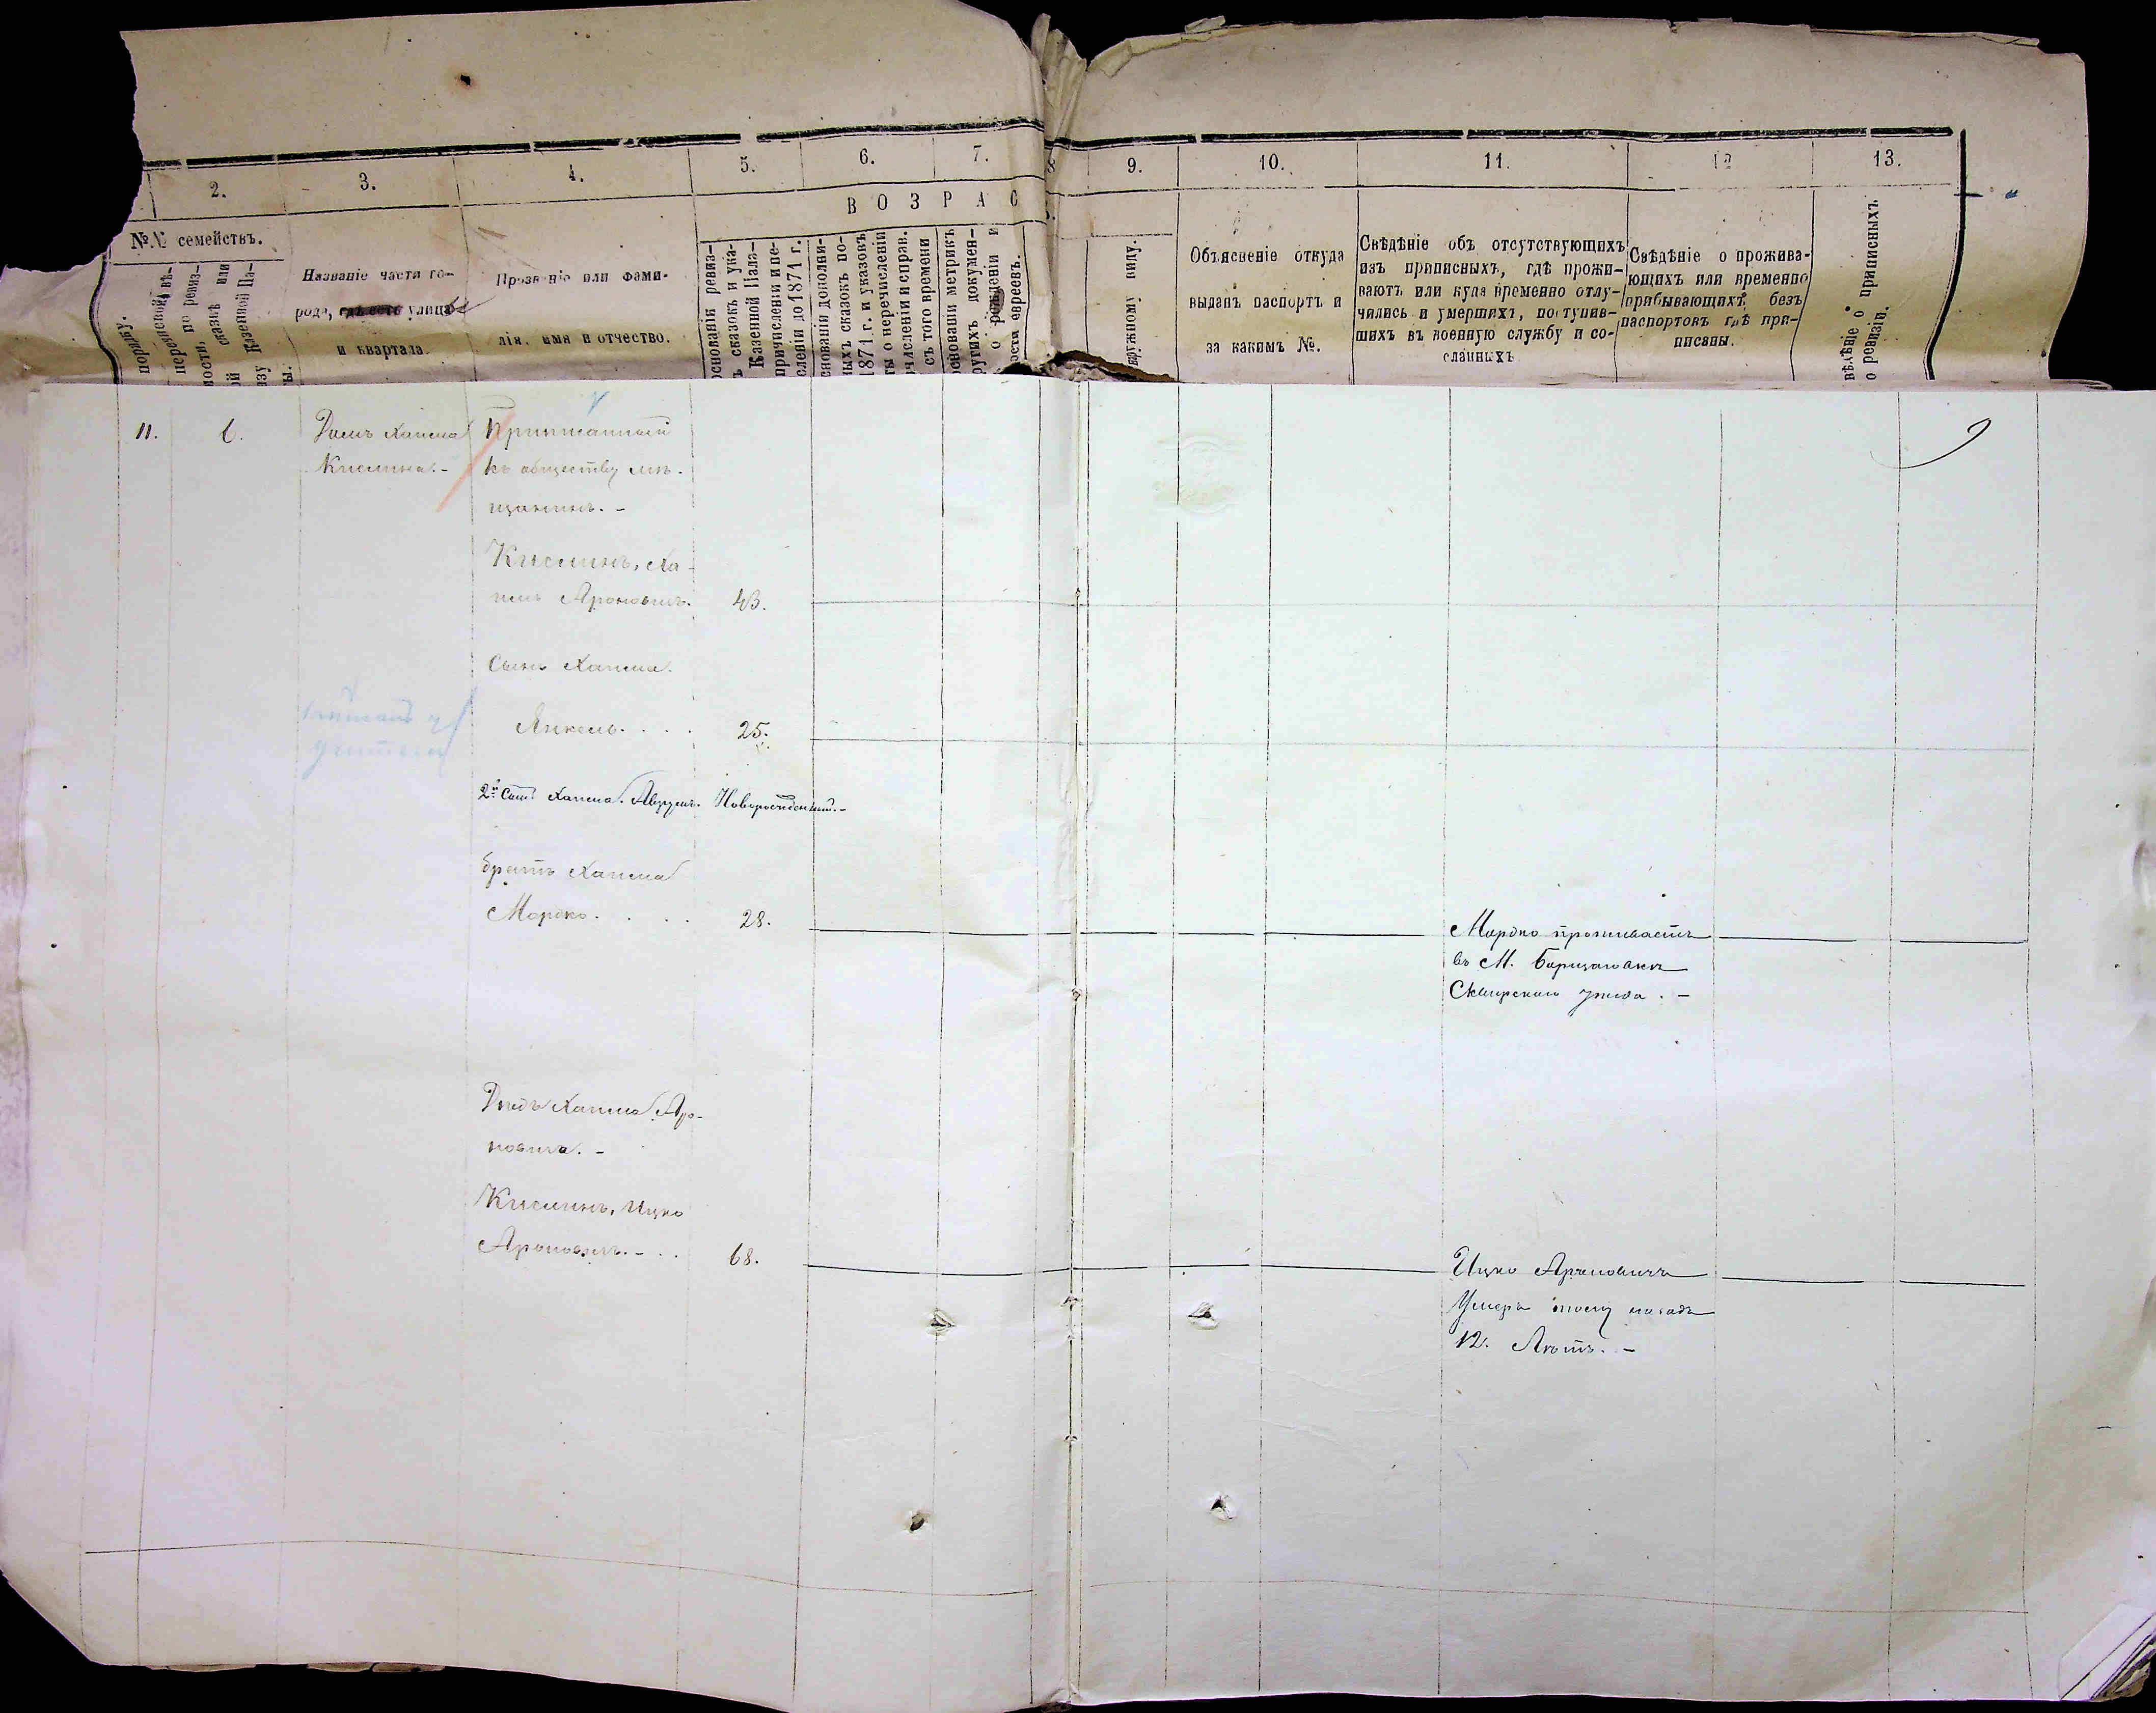 2.
3.
4.
5.
6.
7.
8
9.
10.
11.
12
13.
В О З Р А С
№№ семействъ.
порядку.
Названіе части го-
рода, гдѣ есть улицы
и квартала.
Прозваніе или фами-
лія, имя и отчество.
основанія ревиз-
ъ сказокъ и ука-
Казенной Пала-
причисленіи и пе-
сленіи до 1871 г.
снованіи дополни-
ныхъ сказокъ по-
1871 г. и указовъ
ты о перечисленіи
числении и справ.
съ того времени
основаніи метрикъ
ругихъ докумен-
о рожденіи и
рети евреевъ.
аружному виду.
Объясненіе откуда
выданъ паспортъ и
за какимъ №.
Свѣдѣніе объ отсутствующихъ
изъ приписныхъ, гдѣ прожи-
ваютъ или куда временно отлу-
чились и умершихъ, поступив-
шихъ въ военную службу и со-
сланныхъ
Свѣдѣніе о прожива-
ющихъ или временно
прибывающихъ, безъ
паспортовъ гдѣ при-
писаны.
вѣдѣніе о приписныхъ
о ревизіи.
9
11.
6.
Домъ Хаима
Кислина. -
Приписанный
къ обществу мѣ-
щанинъ. -
Кислинъ, Ха-
имъ Ароновичъ. 43.
Сынъ Хаима.
Янкель. . . . 25.
2й Сынъ Хаима. Аврумъ. Новорожденный. -
Братъ Хаима
Мордко. . . . 28.
Мордко проживаетъ
въ М. Борщаговкѣ
Сквирскаго уѣзда. -
Дядя Хаима Аро-
новича. -
Кислинъ, Ицко
Ароновичъ. - . . 68.
Ицко Ароновичъ
Умеръ тому назадъ
12. Лѣтъ. -